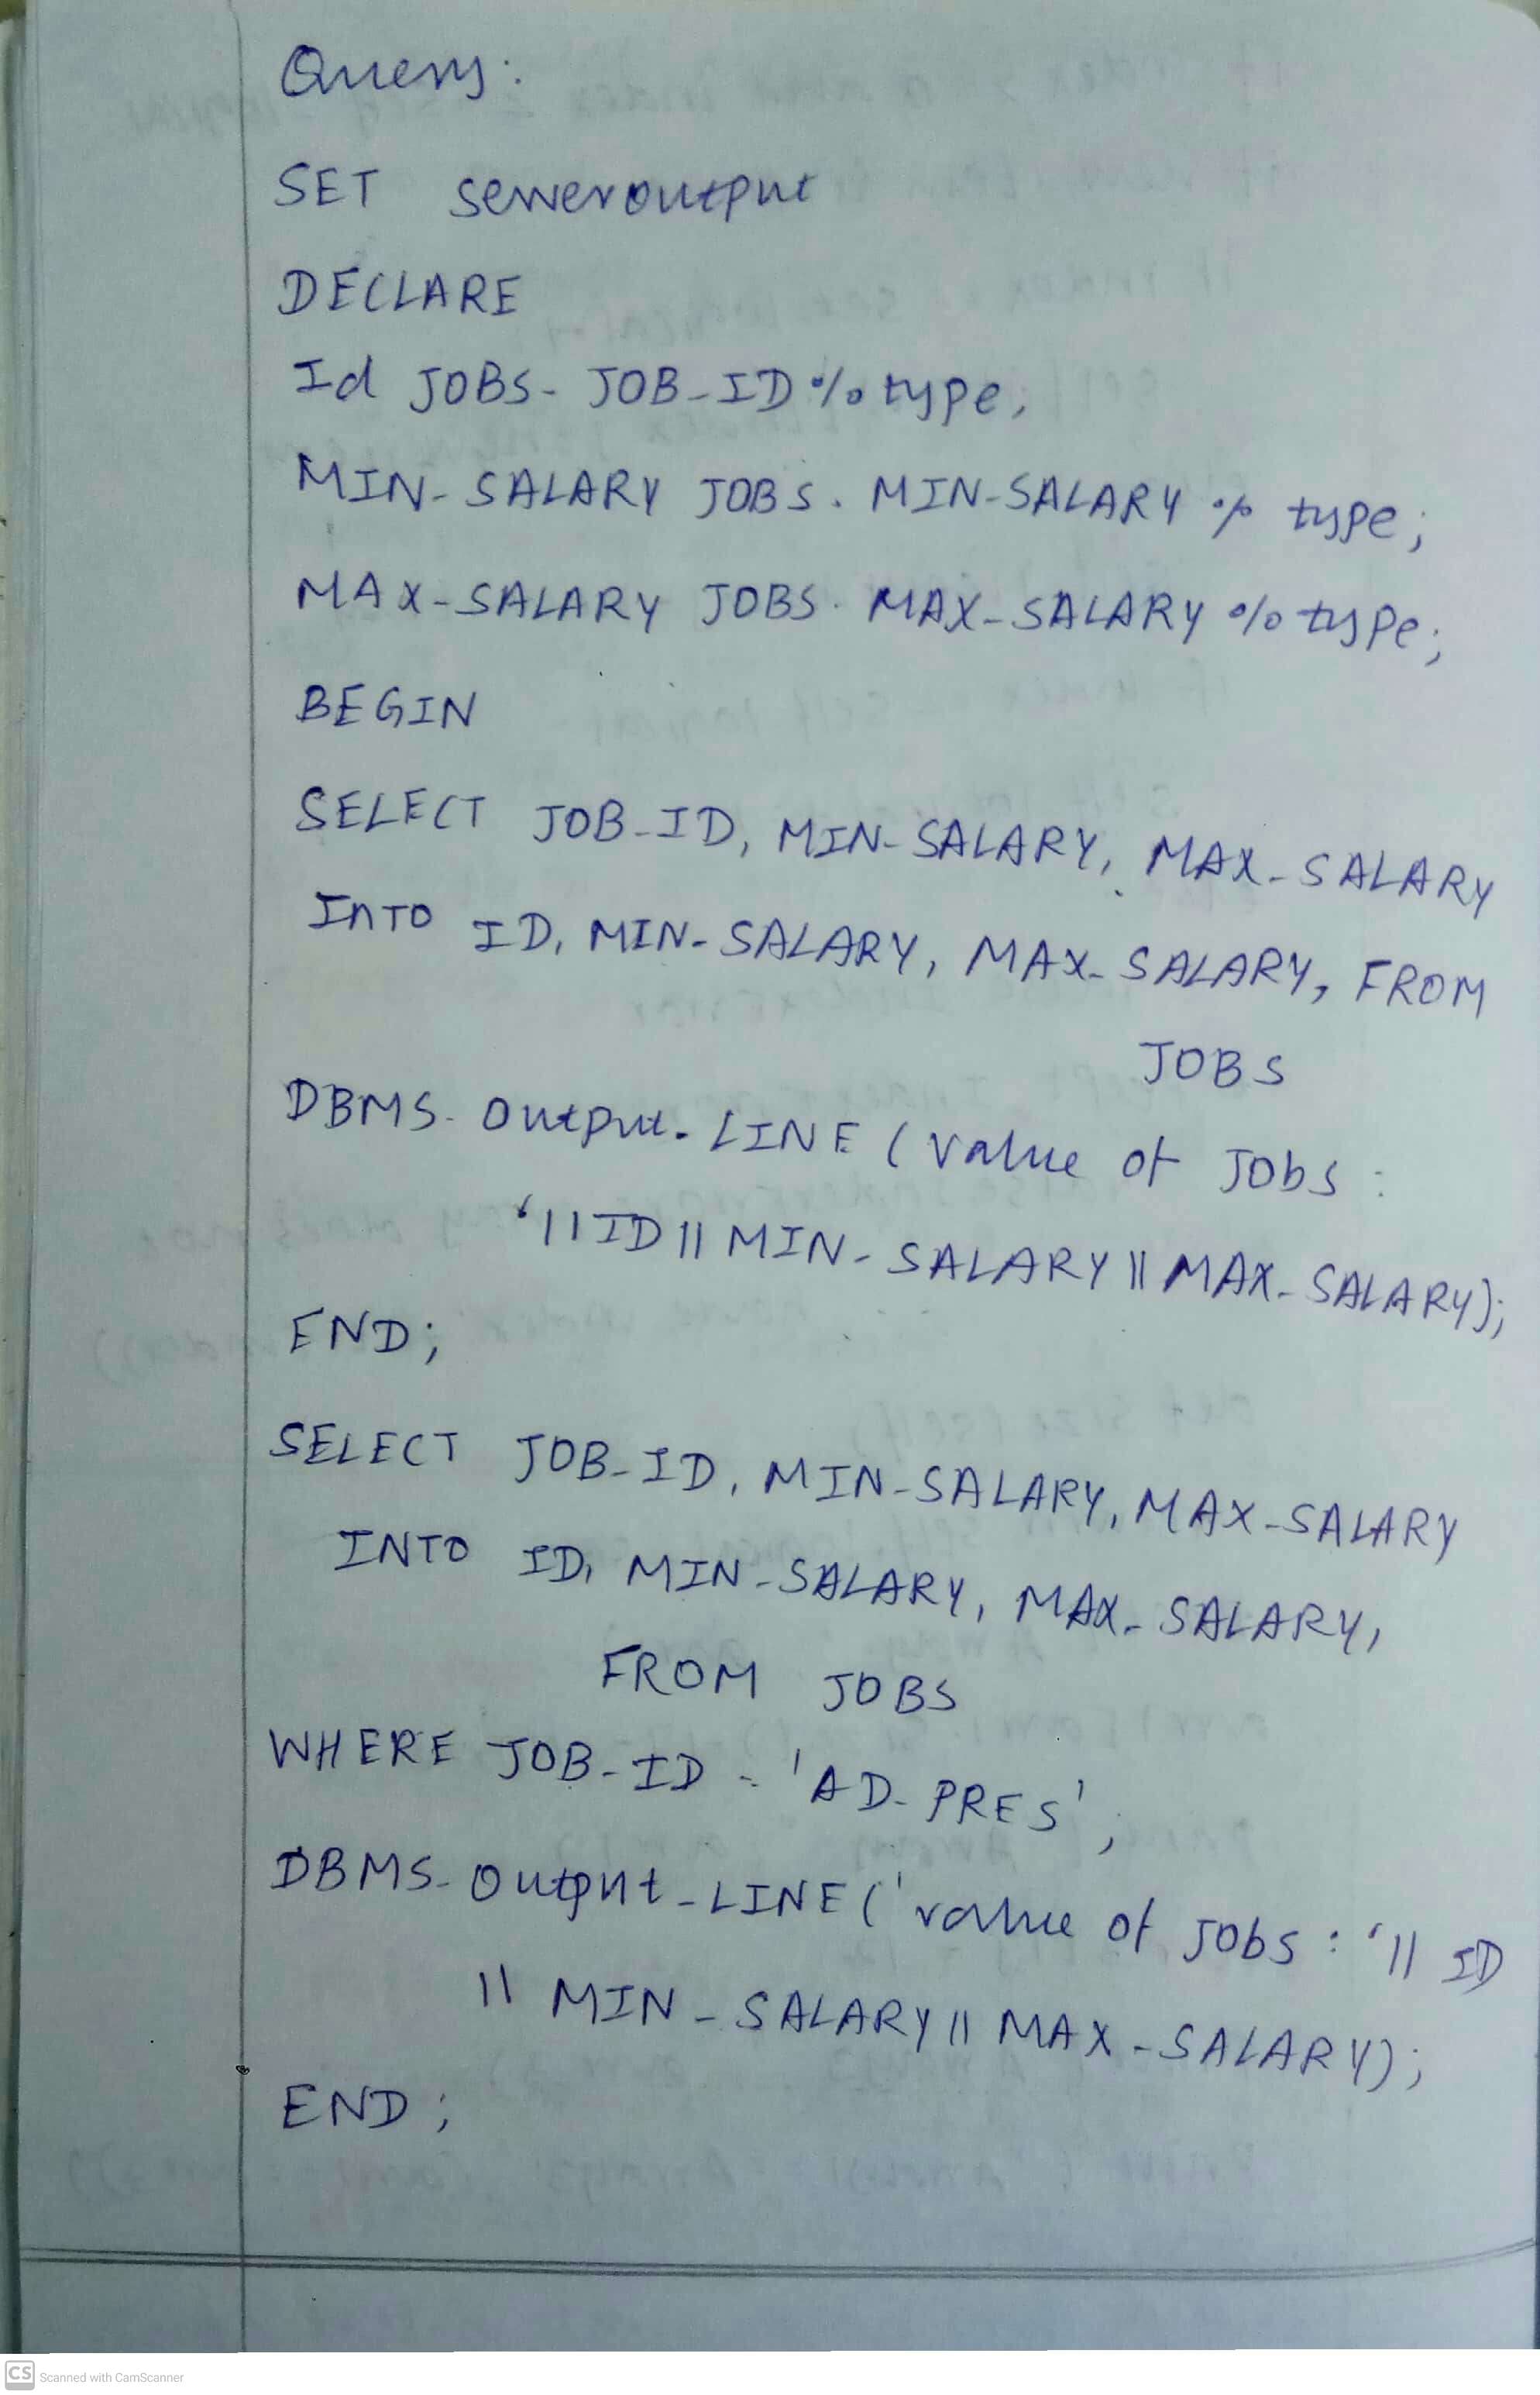 Query:
SET serveroutput
DECLARE
Id JOBS- JOB-ID%type,
MIN-SALARY JOBS. MIN-SALARY % type;
MAX-SALARY JOBS. MAX-SALARY %type;
BEGIN
SELECT JOB-ID, MIN-SALARY, MAX-SALARY
InTO ID, MIN-SALARY, MAX-SALARY, FROM
JOBS
DBMS- Output. LINE (value of Jobs :
'|| ID || MIN-SALARY || MAX-SALARY);
END;
SELECT JOB-ID, MIN-SALARY, MAX-SALARY
INTO ID, MIN-SALARY, MAX-SALARY,
FROM JOBS
WHERE JOB-ID = 'AD-PRES',
DBMS-Output-LINE('value of Jobs : '|| ID
|| MIN-SALARY || MAX-SALARY);
END;
CS Scanned with CamScanner